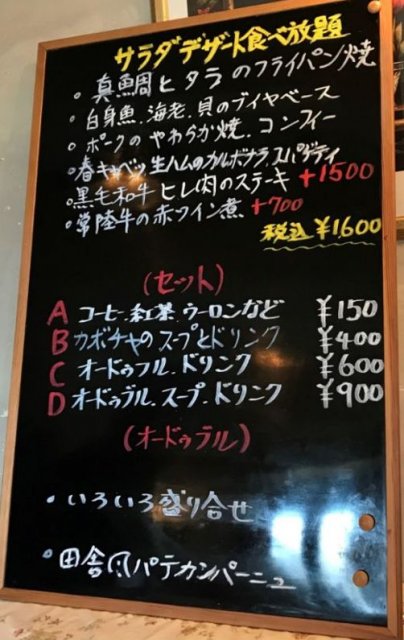 サラダデザート食べ放題
・真鯛とタラのフライパン焼
・白身魚、海老、貝のブイヤベース
・ポークのやわらか焼、コンフィー
・春キャベツ生ハムのカルボナラ、スパゲティ
・黒毛和牛ヒレ肉のステーキ +1500
・常陸牛の赤ワイン煮 +700
税込¥1600
(セット)
A コーヒー、紅茶、ウーロンなど ¥150
B カボチャのスープとドリンク ¥400
C オードゥブル、ドリンク ¥600
D オードゥブル、スープ、ドリンク ¥900
(オードゥブル)
・いろいろ盛り合せ
・田舎風パテカンパーニュ